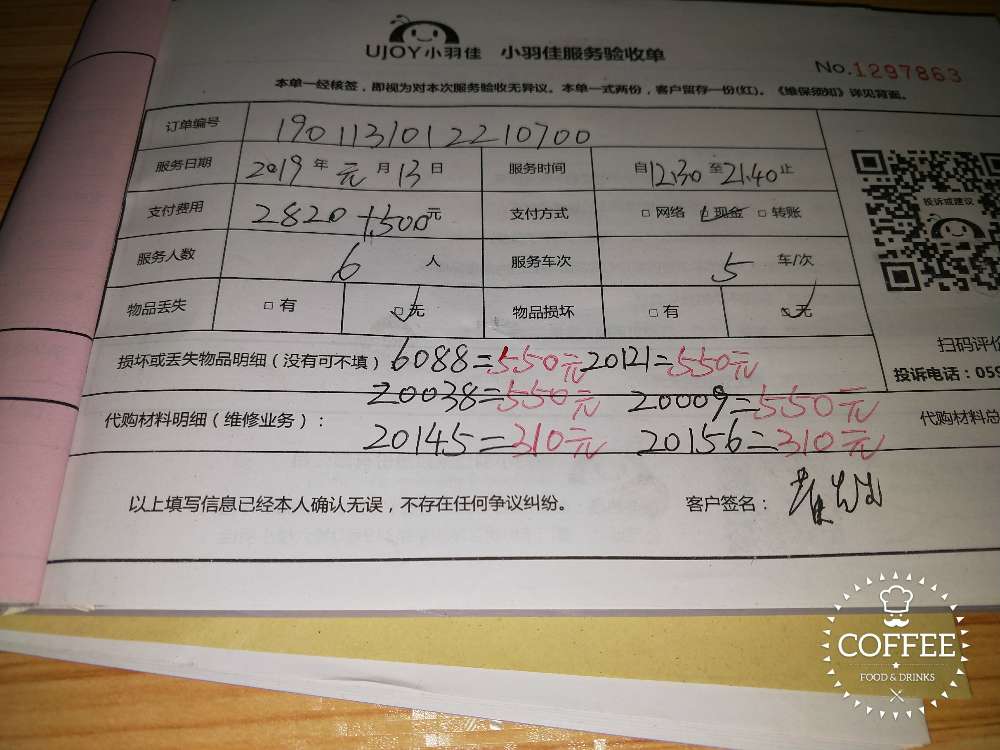 UJOY小羽佳 小羽佳服务验收单
No.1297863
本单一经核签，即视为对本次服务验收无异议。本单一式两份，客户留存一份(红)。《维保须知》详见背面。
订单编号 1901131012210700
服务日期 2019年元月13日 服务时间 自12.30至21.40止
支付费用 2820+500元 支付方式 □网络 □现金 □转账
服务人数 6人 服务车次 5车/次
投诉或建议
物品丢失 □有 □无 物品损坏 □有 □无
扫码评价
损坏或丢失物品明细（没有可不填）6088=550元 20121=550元
投诉电话：059
20038=550元 20009=550元
代购材料明细（维修业务）： 代购材料总
20145=310元 20156=310元
以上填写信息已经本人确认无误，不存在任何争议纠纷。 客户签名：
COFFEE
FOOD & DRINKS